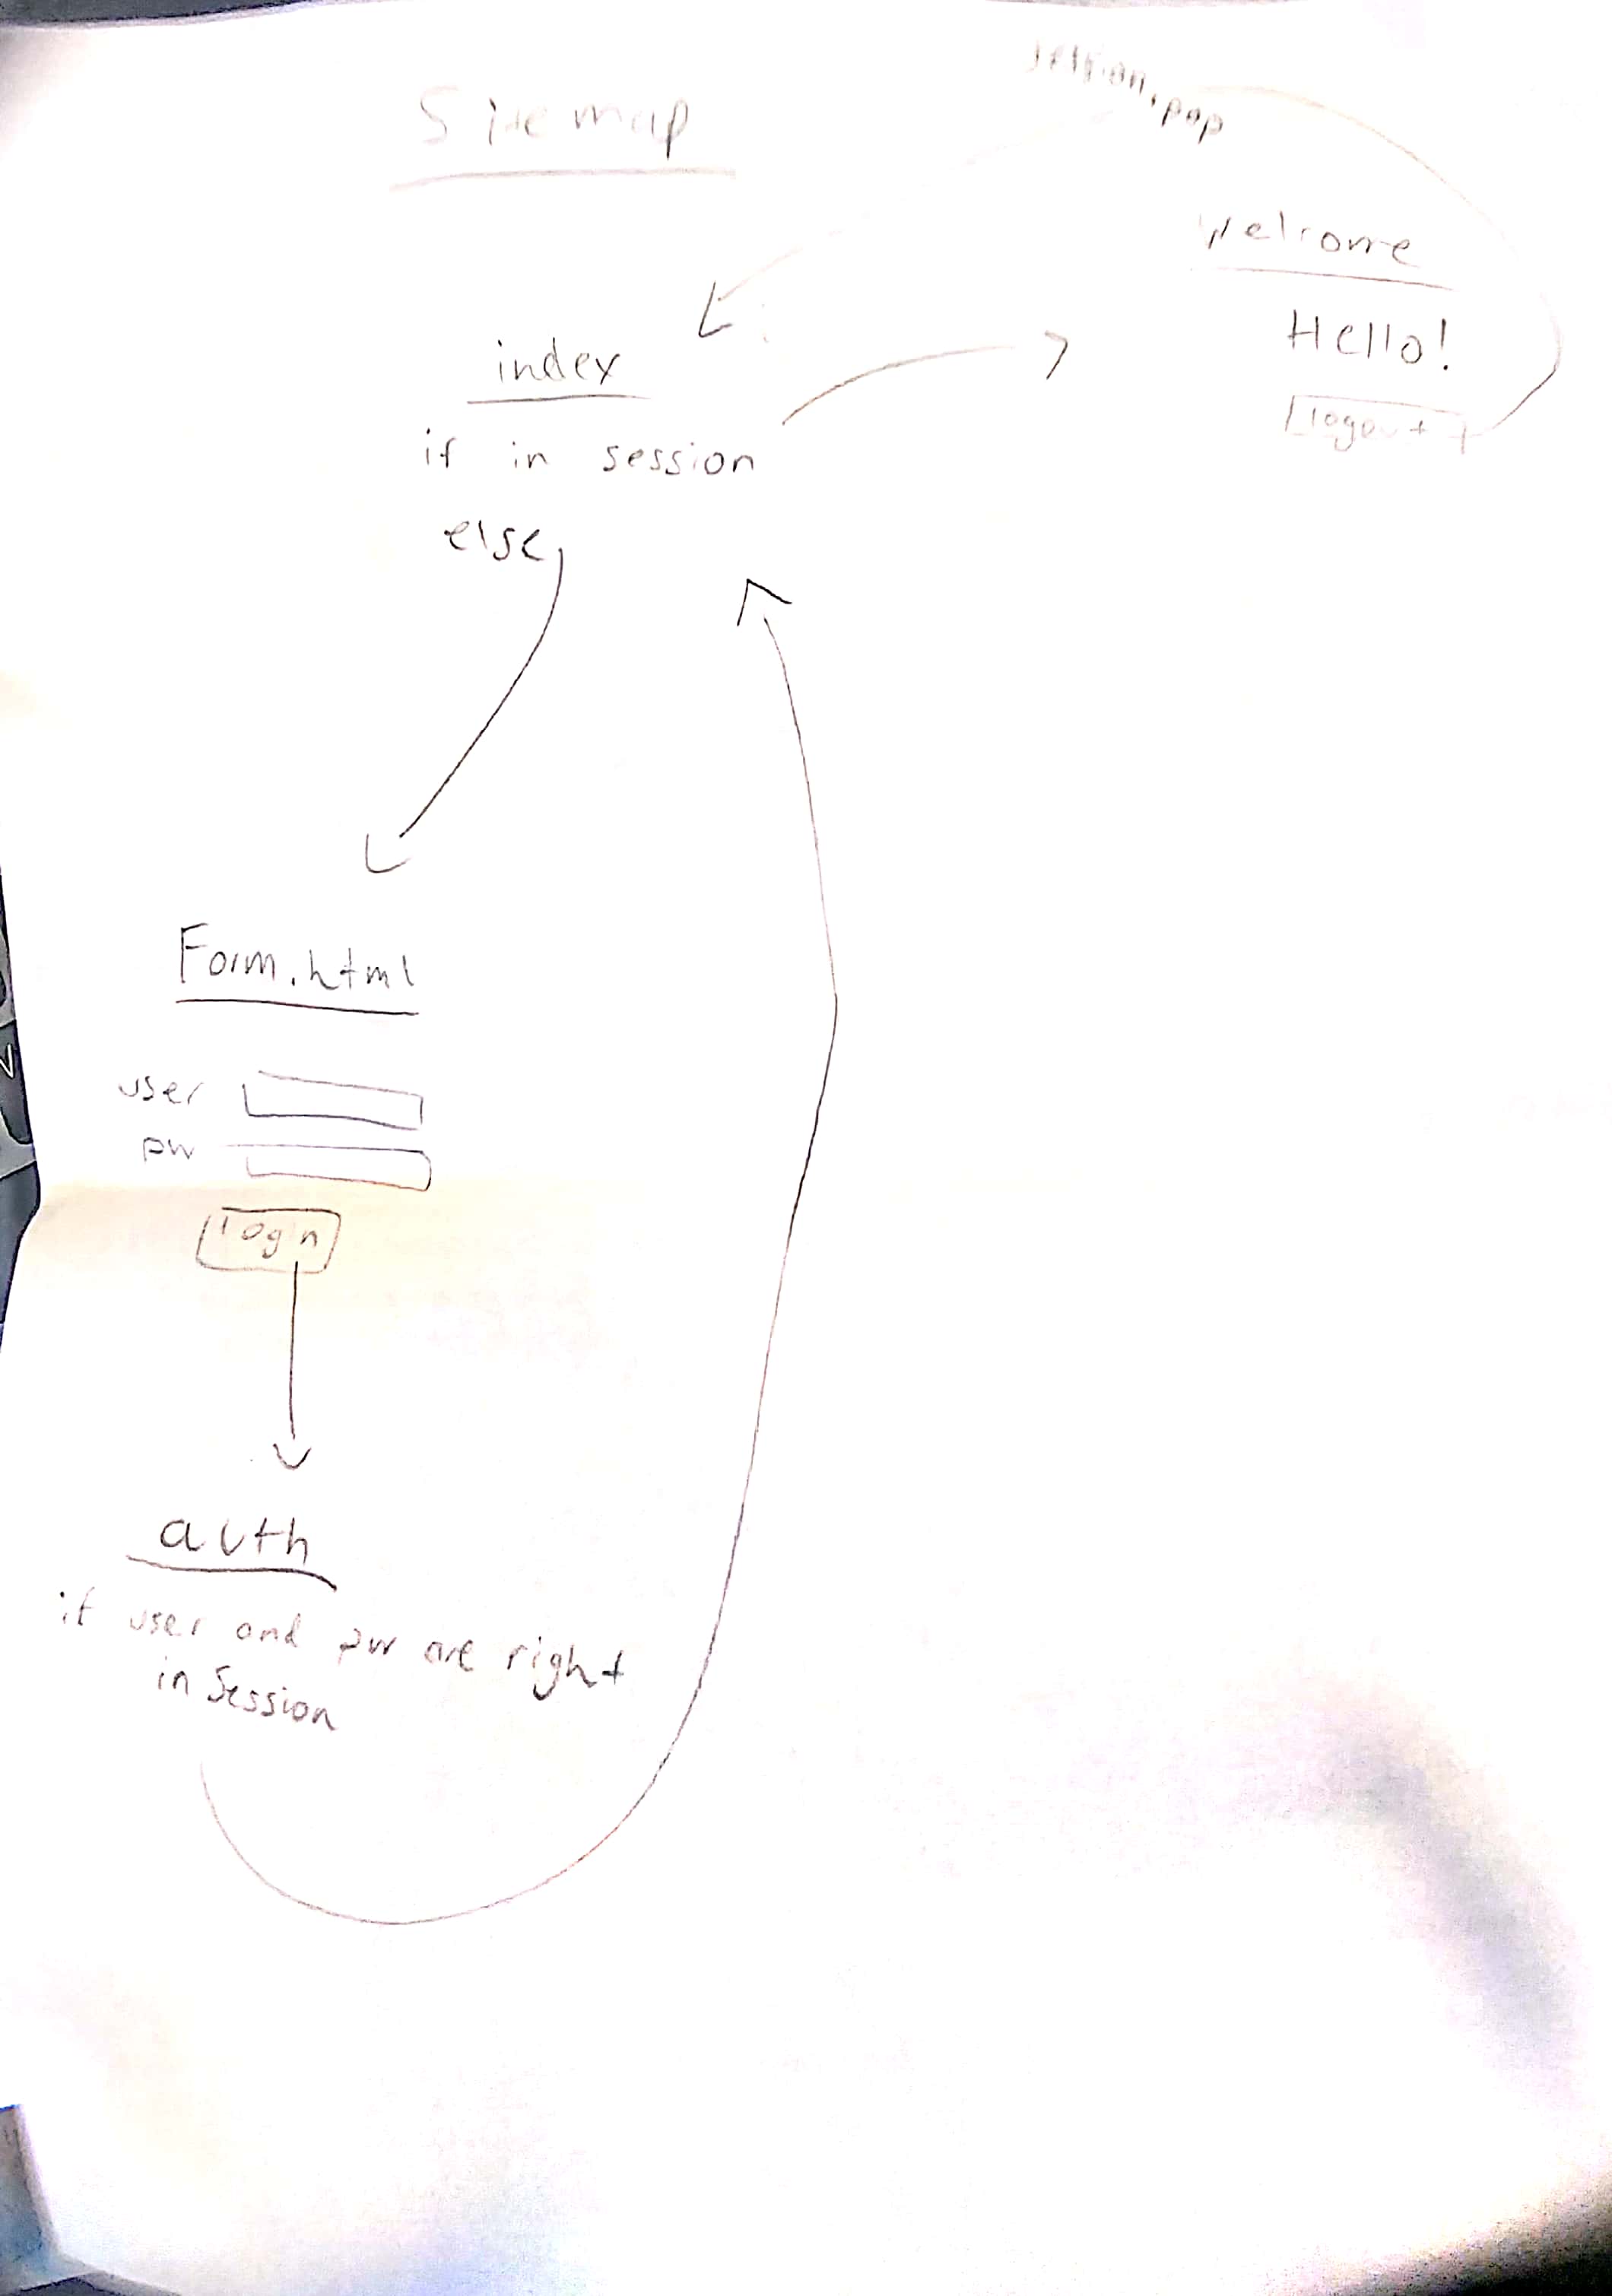 Site map
session.pop
Welcome
Hello!
logout
index
if in session
else
Form.html
user
pw
login
auth
if user and pw are right
in Session